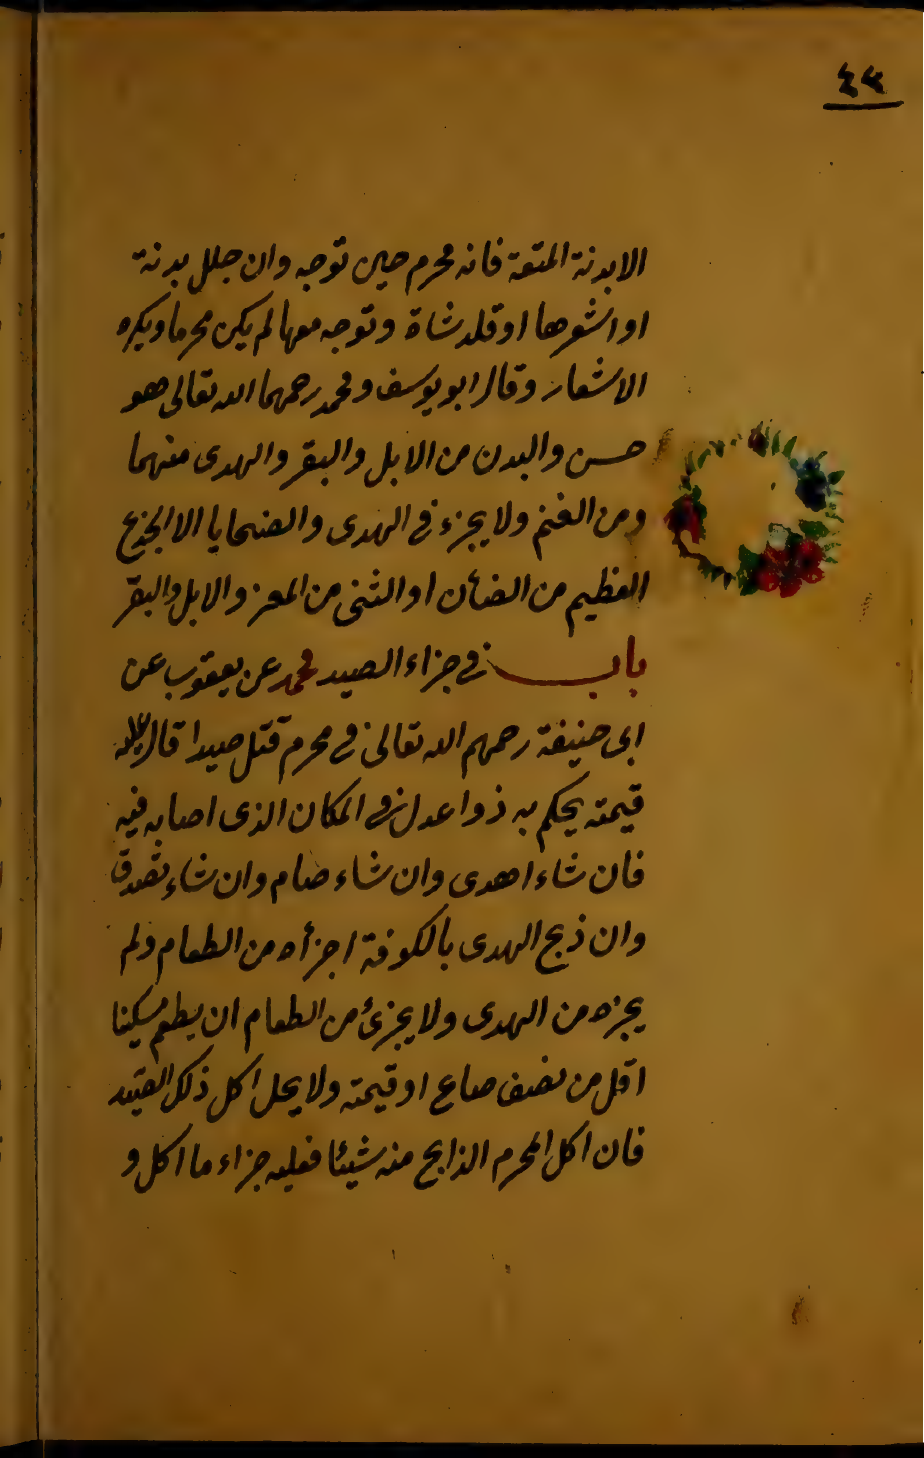 ٤٣
الا بدنة المتعة فانه محرم حين توجه وان جلل بدنة
او اشعرها او قلد شاة وتوجه معها لم يكن محرما ويكره
الاشعار وقال ابو يوسف ومحمد رحمهما الله تعالى هو
حسن والبدن من الابل والبقر والهدى منهما
ومن الغنم ولا يجزء فى الهدى والضحايا الا الجذع
العظيم من الضأن او الثنى من المعز والابل والبقر
باب فى جزاء الصيد محمد عن يعقوب عن
ابى حنيفة رحمهم الله تعالى فى محرم قتل صيدا قال عليه
قيمته يحكم به ذوا عدل فى المكان الذى اصابه فيه
فان شاء اهدى وان شاء صام وان شاء تصدق
وان ذبح الهدى بالكوفة اجزأه من الطعام ولم
يجزه من الهدى ولا يجزئ من الطعام ان يطعم مسكينا
اقل من نصف صاع او قيمته ولا يحل اكل ذلك الصيد
فان اكل المحرم الذابح منه شيئا فعليه جزاء ما اكل و